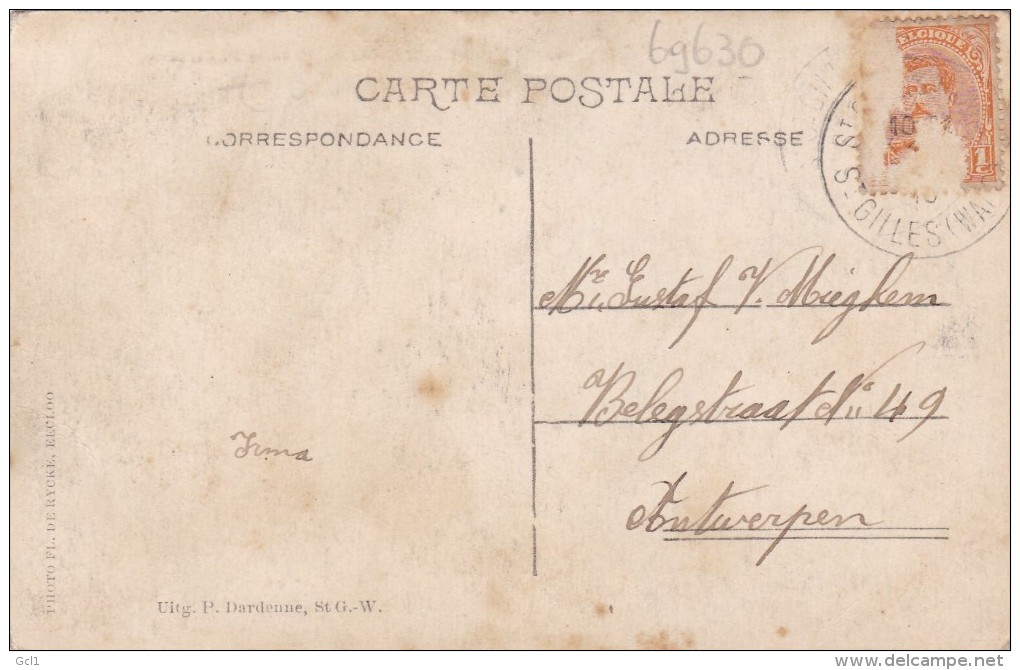 69630
CARTE POSTALE
CORRESPONDANCE
ADRESSE
ELGIQUE
1c
10
S. St
-GILLES (WA
Mr. Gustaf V. Mieghem
Belegstraat No 49
Antwerpen
Irma
PHOTO FL. DE RYCKE, EECLOO
Uitg. P. Dardenne, St G.-W.
Gcl1
www.delcampe.net